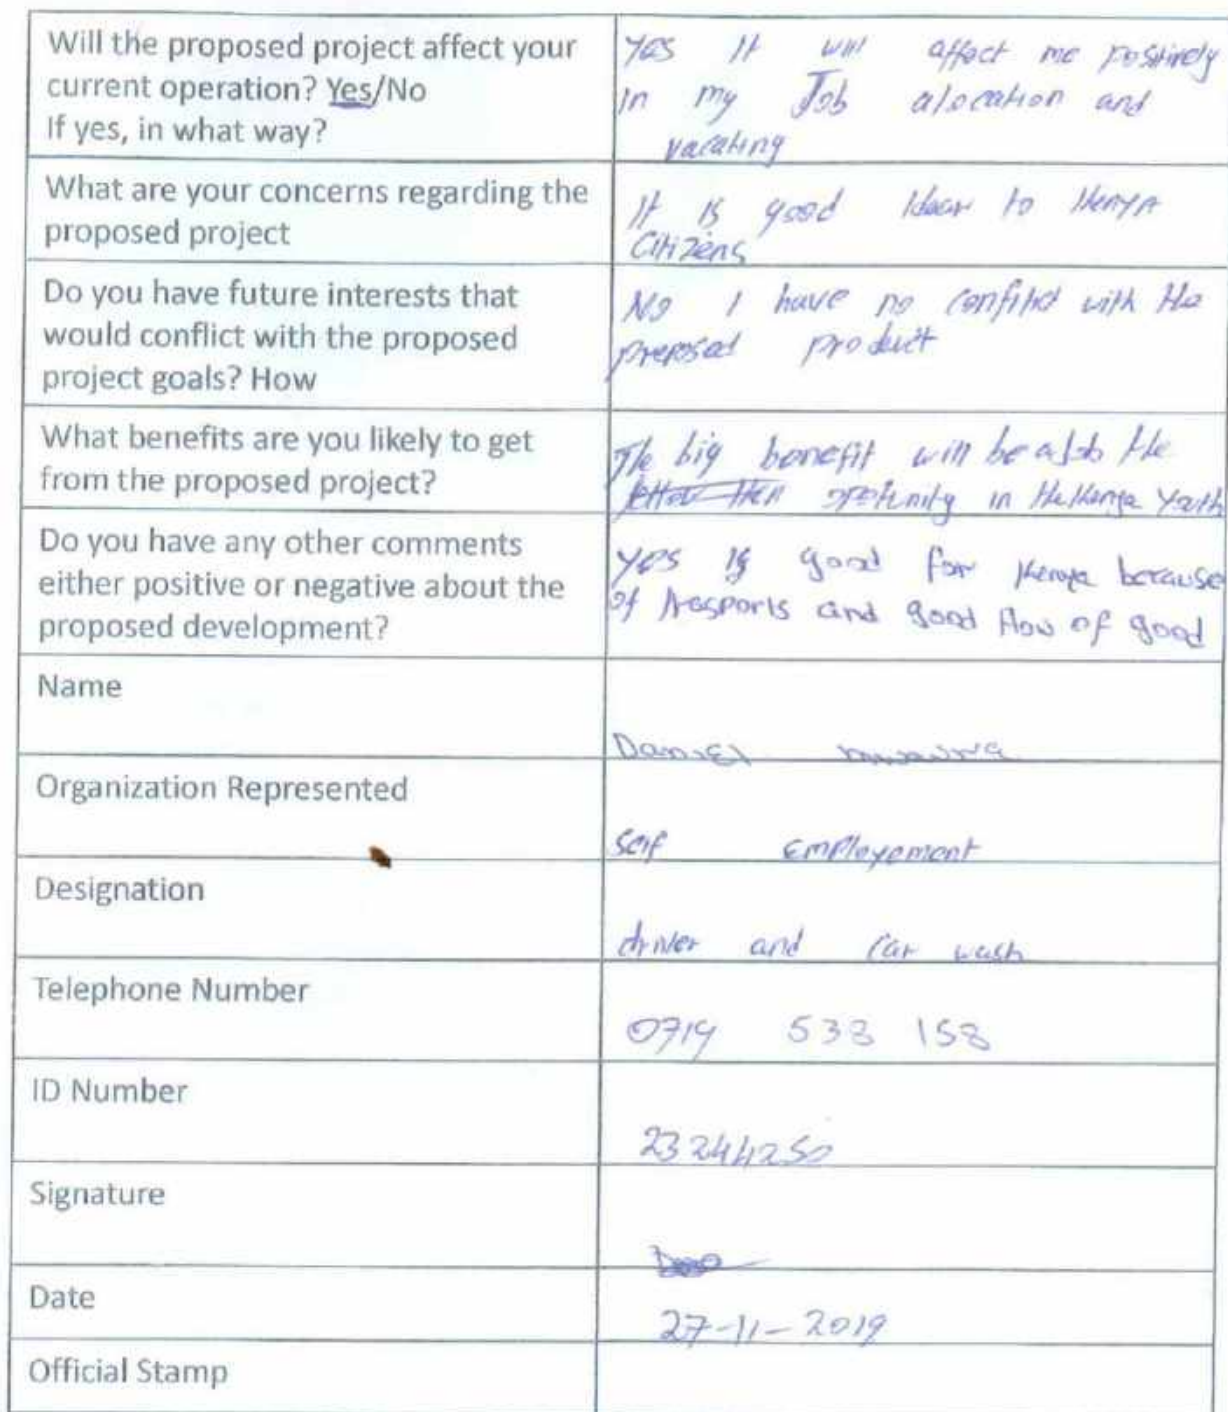 Will the proposed project affect your
current operation? Yes/No
If yes, in what way?
Yes It will affect me positively
in my Job alocation and
vacating
What are your concerns regarding the
proposed project
It is good Idear to Kenya
Citizens
Do you have future interests that
would conflict with the proposed
project goals? How
No I have no conflict with the
preposed product
What benefits are you likely to get
from the proposed project?
The big benefit will be a Job the
in the Kenya Youth
Do you have any other comments
either positive or negative about the
proposed development?
Yes is good for Kenya because
of and good flow of good
Name
Daniel
Organization Represented
Self Employement
Designation
driver and Car wash
Telephone Number
0719 538 158
ID Number
23244250
Signature
Date
27-11-2019
Official Stamp